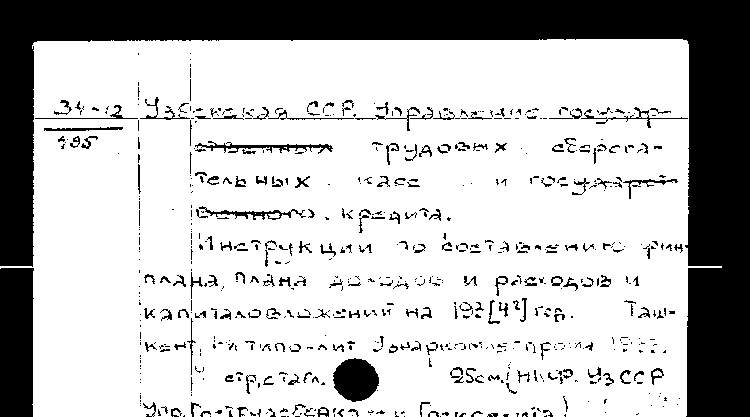 34-12 Узбекская ССР. Управление государ-
195 ственных трудовых сберега-
тельных касс и государст-
венного кредита.
Инструкции по составлению фин-
плана, плана доходов и расходов и
капиталовложений на 193[4?] год. Таш-
кент, типо-лит. Узнаркомлегпрома
стр. с табл. 25 см. (НКФ. УзССР
Упр. Гострудсберкасс и Госкредита)